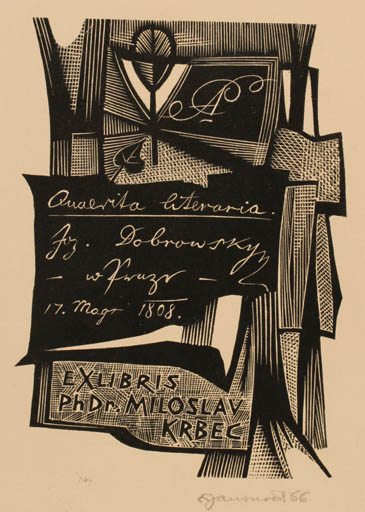 A
Quaerita literaria.
Joz. Dobrowsky
– w Praze –
17. Mage 1808.
EXLIBRIS
PhDr. MILOSLAV
KRBEC
66